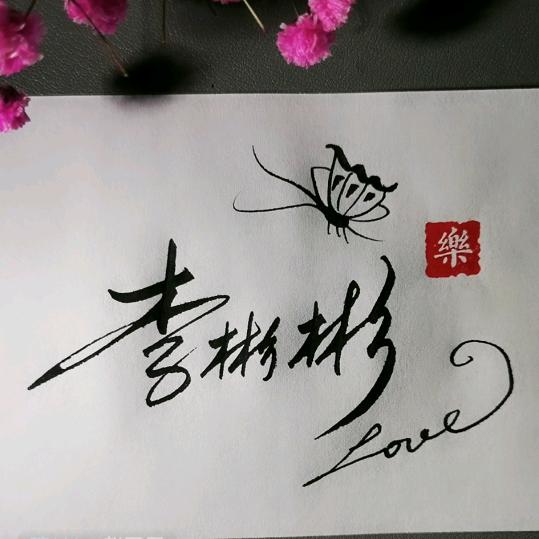 樂
李彬彬
Love